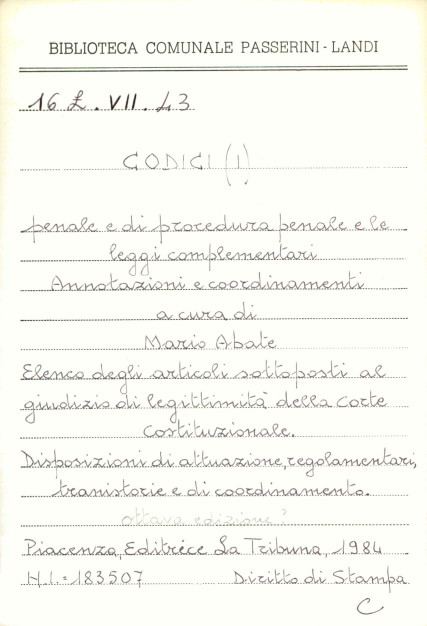 BIBLIOTECA COMUNALE PASSERINI - LANDI
16 L. VII. 43
CODICI (I)
penale e di procedura penale e le
leggi complementari
Annotazioni e coordinamenti
a cura di
Mario Abate
Elenco degli articoli sottoposti al
giudizio di legittimità della Corte
Costituzionale.
Disposizioni di attuazione, regolamentari,
tranistorie e di coordinamento.
ottava edizione
Piacenza, Editrice La Tribuna, 1984
N.I. = 183507 Diritto di Stampa
C